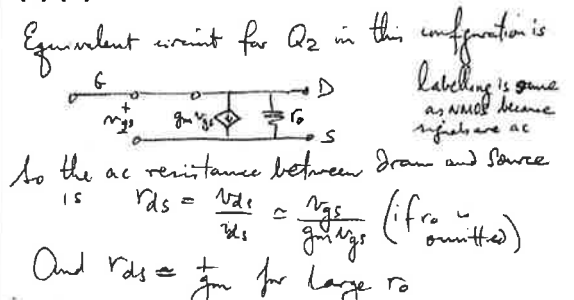 Equivalent circuit for Q2 in this configuration is
G
D
Labelling is same
as NMOS because
signals are ac
+
vgs
gm vgs
ro
S
So the ac resistance between Drain and Source
is rds = vds/ids ≃ vgs/gm vgs (if ro is omitted)
And rds ≃ 1/gm for large ro